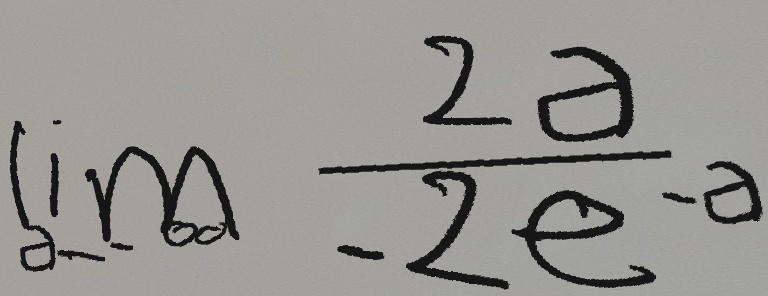 lim_{a \to -\infty} \frac{2a}{-2e^{-a}}